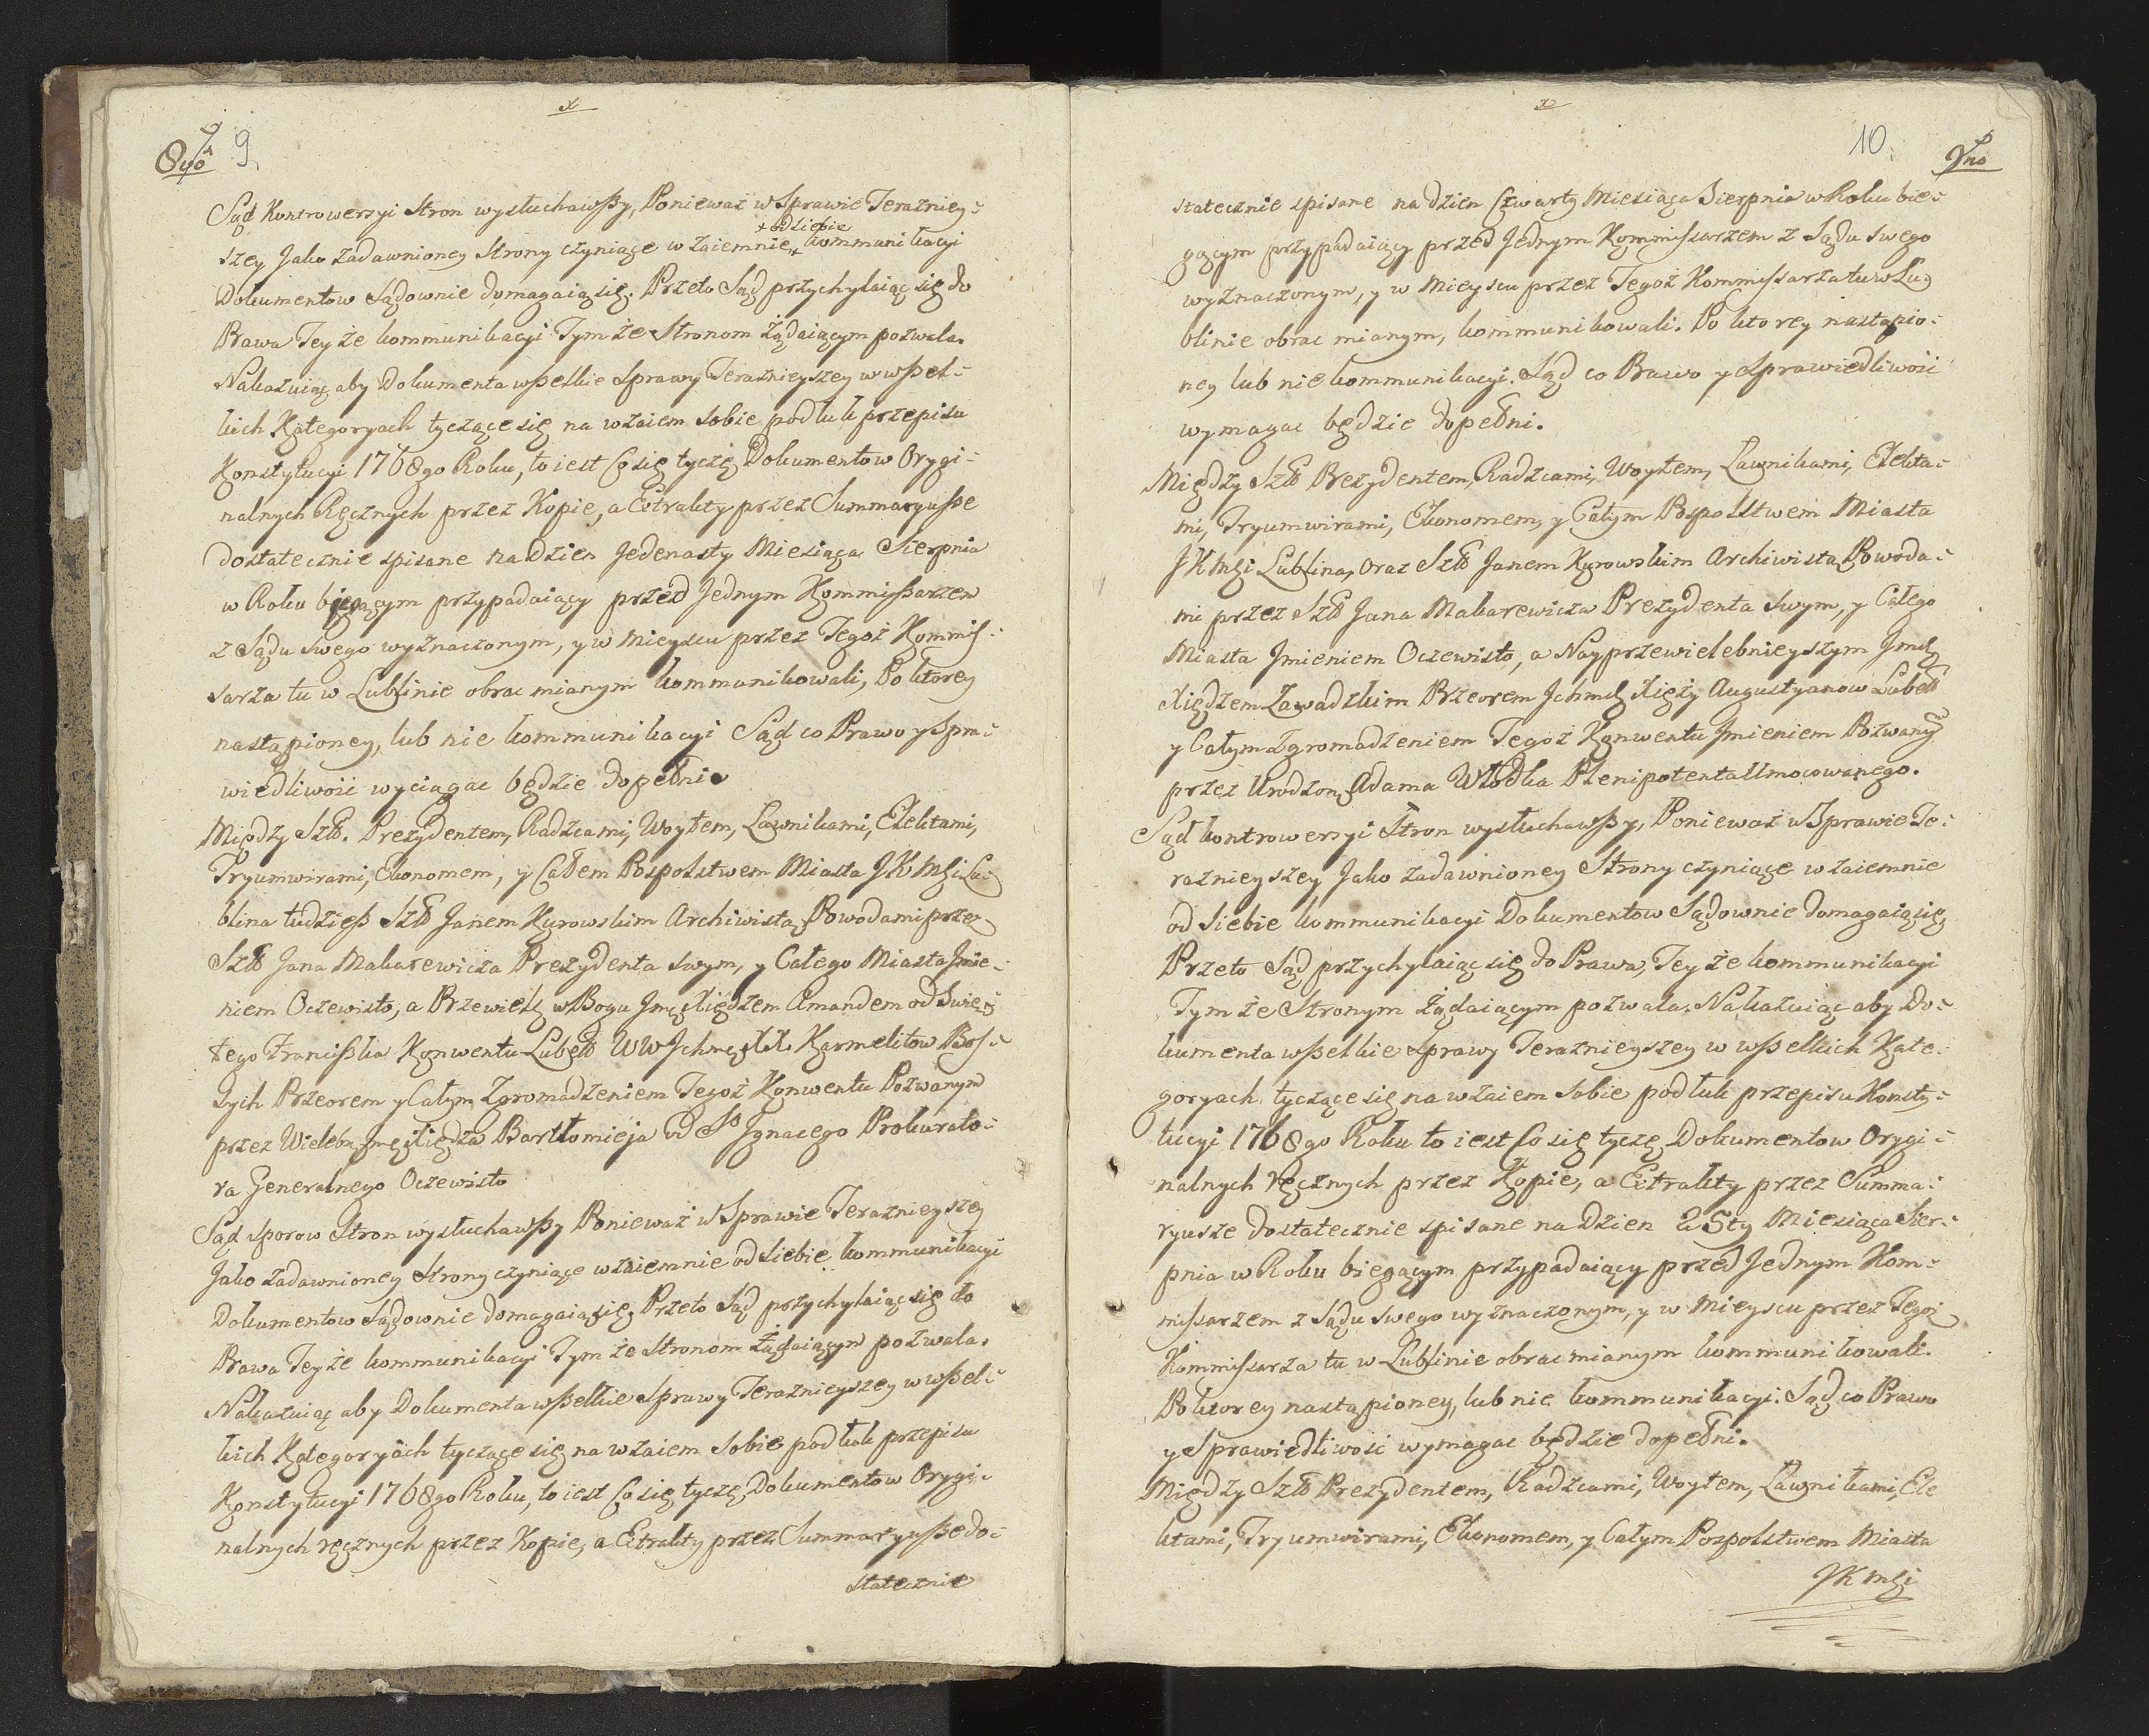 x
9
Sąd Kontrowersyi Stron wysłuchawßy, Ponieważ w Sprawie Teraźniey-
+ od siebie
szey Jako zadawnioney Strony czyniące wzaiemnie + kommunikacyi
Dokumentow Sądownie domagaią się. Przeto Sąd przychylaiąc się do
Prawa Teyże kommunikacyi Tymże Stronom żądaiącym pozwala.
Nakazuiąc aby Dokumenta wßelkie Sprawy Teraźnieyszey w wßel-
kich Kategoryach tyczące się na wzaiem sobie podług przepisu
Konstytucyi 1768go Roku, to iest Co się tyczę Dokumentow Orygi-
nalnych Ręcznych przez Kopie, a Extrakty przez Summaryuße
dostatecznie spisane na dzien Jedenasty Miesiąca Sierpnia
w Roku bieącym przypadaiący przed Jednym Kommißarzem
z Sądu swego wyznaczonym, y w mieyscu przez Tegoż Kommis-
sarza tu w Lublinie obrac mianym kommunikowali, Po ktorey
nastąpioney, lub nie kommunikacyi Sąd co Prawo y Spra-
wiedliwość wyciągac będzie dopełni.
Między Szl. Prezydentem, Radzcami, Woytem, Ławnikami, Elektami,
Tryumwirami, Ekonomem, y Całem Pospolstwem Miasta JKMci Lu-
blina tudzieß Szl Janem Kurowskim Archiwistą Powodami przez
Szl Jana Makarewicza Prezydenta swym, y Całego Miasta Jmie-
niem Oczewisto, a Przewiel w Bogu Jmę Xiędzem Amandem od Swię-
tego Francißka Konwentu Lubel WW Jchmę XX. Karmelitow Bos-
sych Przeorem y Całym Zgromadzeniem Tegoż Konwentu Pozwanym
przez Wieleb Jmę Xiędza Bartłomieja od So Jgnacego Prokurato-
ra Generalnego Oczewisto
Sąd sporow Stron wysłuchawßy Ponieważ w Sprawie Teraźnieyszey
Jako zadawnioney Strony czyniące wzaiemnie od siebie kommunikacyi
Dokumentow Sądownie domagaią się, Przeto Sąd przychylaiąc się do
Prawa Teyże kommunikacyi Tymże Stronom żądaiącym pozwala.
Nakazuiąc aby Dokumenta wßelkie Sprawy Teraźnieyszey w wßel-
kich Kategoryach tyczące się na wzaiem sobie podług przepisu
Konstytucyi 1768go Roku, to iest Co się tyczę Dokumentow Orygi-
nalnych ręcznych przez Kopie, a Extrakty przez Summaryuße do-
statecznie
x
10
statecznie spisane na dzien Czwarty Miesiąca Sierpnia w Roku bie-
gącym przypadaiący przed Jednym Kommissarzem z Sądu swego
wyznaczonym, y w Mieyscu przez Tegoż Kommissarza tu w Lu-
blinie obrac mianym, kommunikowali. Po ktorey nastąpio-
ney lub nie kommunikacyi. Sąd co Prawo y Sprawiedliwość
wymagac będzie dopełni.
Między Szl Prezydentem, Radzcami, Woytem, Ławnikami, Elekta-
mi, Tryumwirami, Ekonomem, y Całym Pospolstwem Miasta
JKMci Lublina, oraz Szl Janem Kurowskim Archiwistą Powoda-
mi przez Szl Jana Makarewicza Prezydenta swym, y Całego
Miasta Jmieniem Oczewisto, a Nayprzewielebnieyszym Jmcl
Xiędzem Zawadzkim Przeorem Jchmcl Xięży Augustyanow Lubel
y Całym Zgromadzeniem Tegoż Konwentu Jmieniem Pozwany
przez Urodzon Adama Włodka Plenipotenta Umocowanego.
Sąd kontrowersyi Stron wysłuchawßy, Ponieważ w Sprawie Te-
raznieyszey Jako zadawnioney Strony czyniące wzaiemnie
od siebie kommunikacyi Dokumentow Sądownie domagaią się,
Przeto Sąd przychylaiąc się do Prawa, Teyże kommunikacyi
Tymże Stronym żądaiącym pozwala. Nakazuiąc aby Do-
kumenta wßelkie Sprawy Teraźnieyszey w wßelkich Kate-
goryach tyczące się na wzaiem sobie podług przepisu Konsty-
tucyi 1768go Roku to iest Co się tyczę Dokumentow Orygi-
nalnych ręcznych przez Kopie, a Extrakty przez Summa-
ryusze dostatecznie spisane na dzien 25ty Miesiąca Sier-
pnia w Roku biegącym przypadaiący przed Jednym Kom-
missarzem z Sądu swego wyznaczonym, y w Mieyscu przez Tegoż
Kommissarza tu w Lublinie obrac mianym kommunikowali.
Po ktorey nastąpioney, lub nie kommunikacyi. Sąd co Prawo
y Sprawiedliwość wymagac będzie dopełni.
Między Szl Prezydentem, Radzcami, Woytem, Ławnikami, Ele
ktami, Tryumwirami, Ekonomem, y Całym Pospolstwem Miasta
JKMci